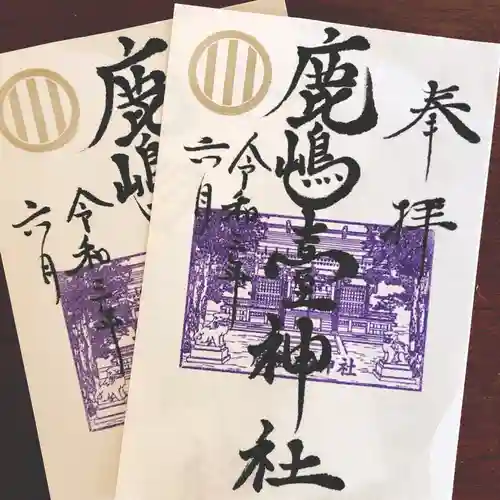 奉拝
鹿嶋臺神社
令和三年
六月
神社
鹿嶋
令和三年
六月